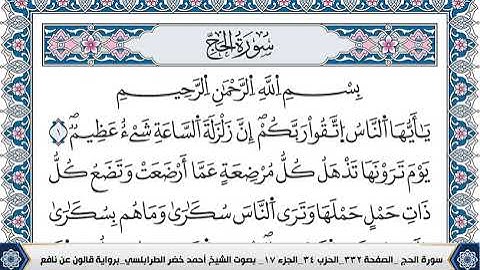 سُورَةُ الحَجِّ
بِسْمِ اِللَّهِ اِلرَّحْمَٰنِ اِلرَّحِيمِ
يَـٰأَيُّهَا اَلنَّاسُ اُتَّقُواْ رَبَّكُمْۖ إِنَّ زَلْزَلَةَ اَلسَّاعَةِ شَےْءٌ عَظِيمٞۖ ١
يَوْمَ تَرَوْنَهَا تَذْهَلُ كُلُّ مُرْضِعَةٍ عَمَّا أَرْضَعَتْ وَتَضَعُ كُلُّ
ذَاتِ حَمْلٍ حَمْلَهَا وَتَرَى اَلنَّاسَ سُكَٰرَىٰ وَمَا هُم بِسُكَٰرَىٰ
سورة الحج _الصفحة ٣٣٢_الحزب ٣٤_الجزء ١٧_ بصوت الشيخ أحمد خضر الطرابلسي_برواية قالون عن نافع